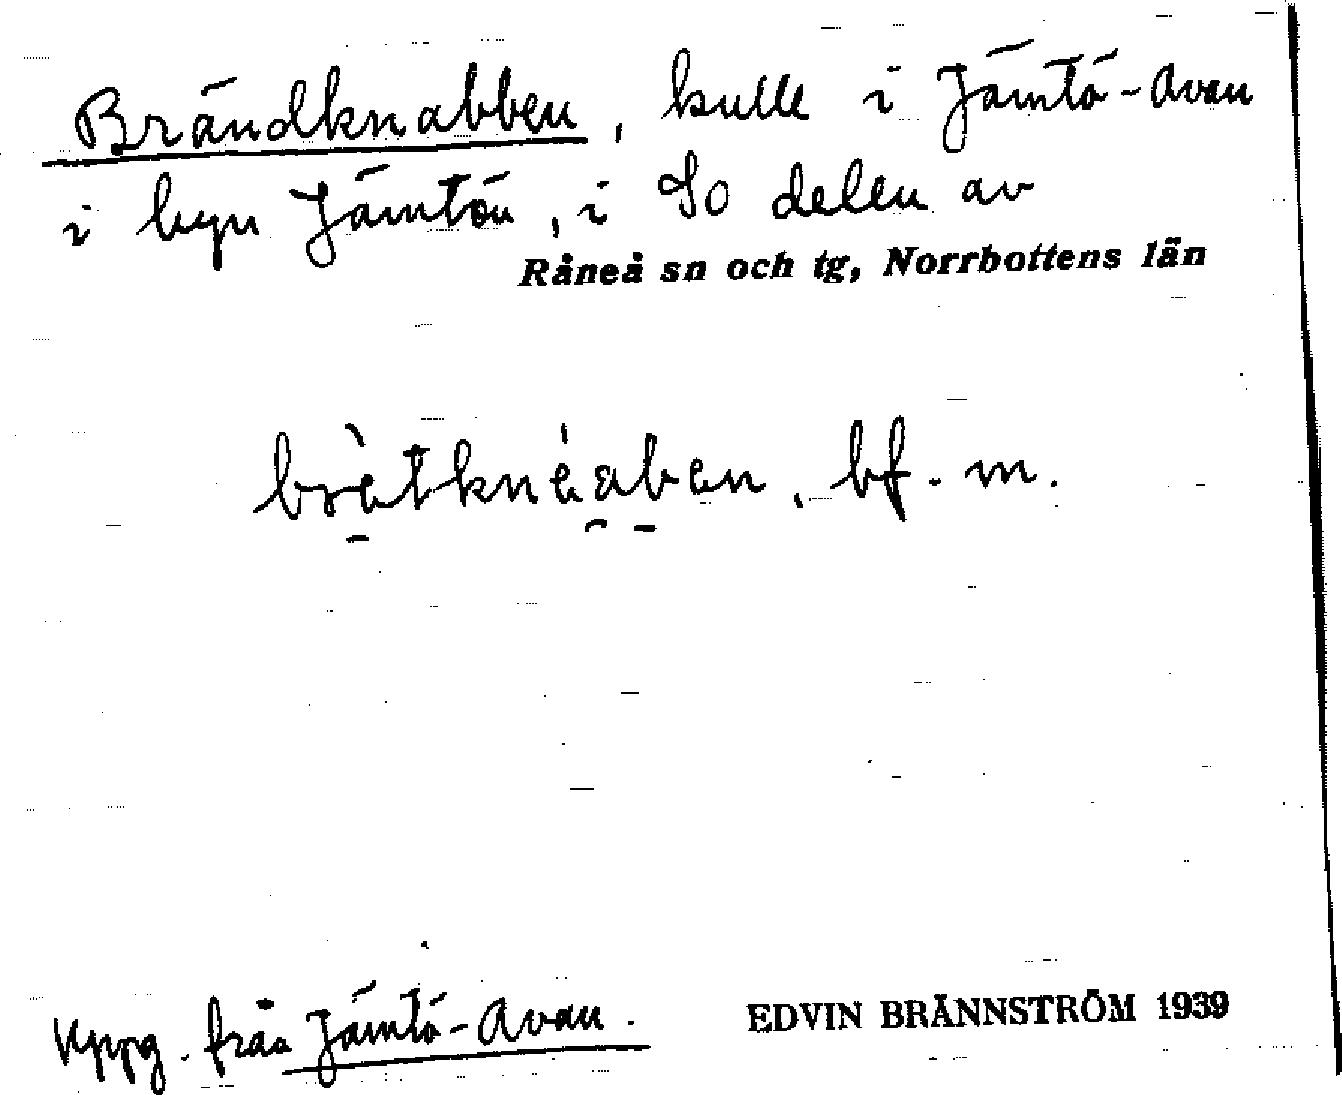 Brändknabben, kulle i Jämtö-Avan
i byn Jämtön, i So delen av
Råneå sn och tg, Norrbottens län
brètknéaben, bf. m.
Uppg. från Jämtö-Avan.
EDVIN BRÄNNSTRÖM 1939